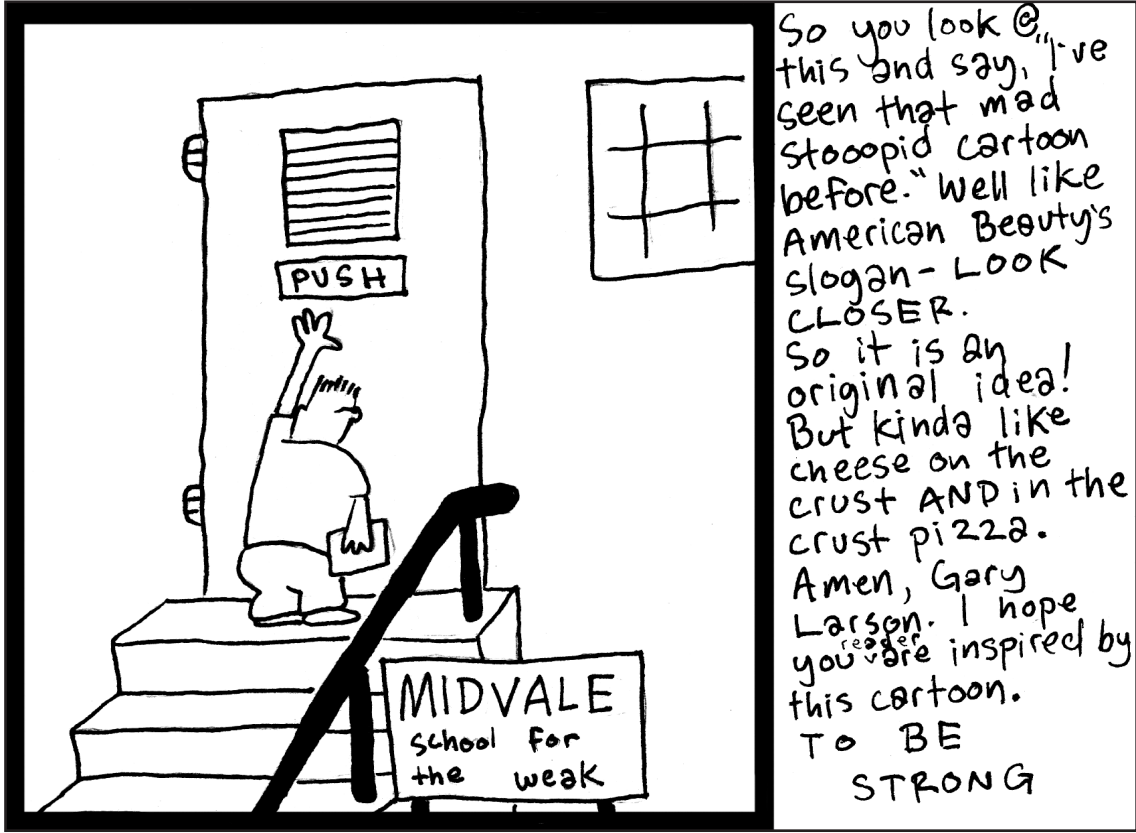 PUSH
MIDVALE
school for
the weak
So you look @
this and say, "I've
seen that mad
stooopid cartoon
before." Well like
American Beauty's
slogan- LOOK
CLOSER.
So it is an
original idea!
But kinda like
cheese on the
crust AND in the
crust pizza.
Amen, Gary
Larson. I hope
you reader are inspired by
this cartoon.
TO BE
STRONG